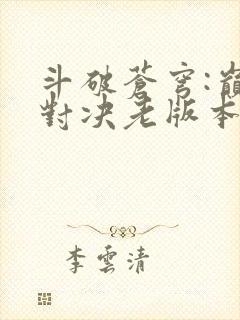 斗破蒼穹:巔
對决老版本
李雲清